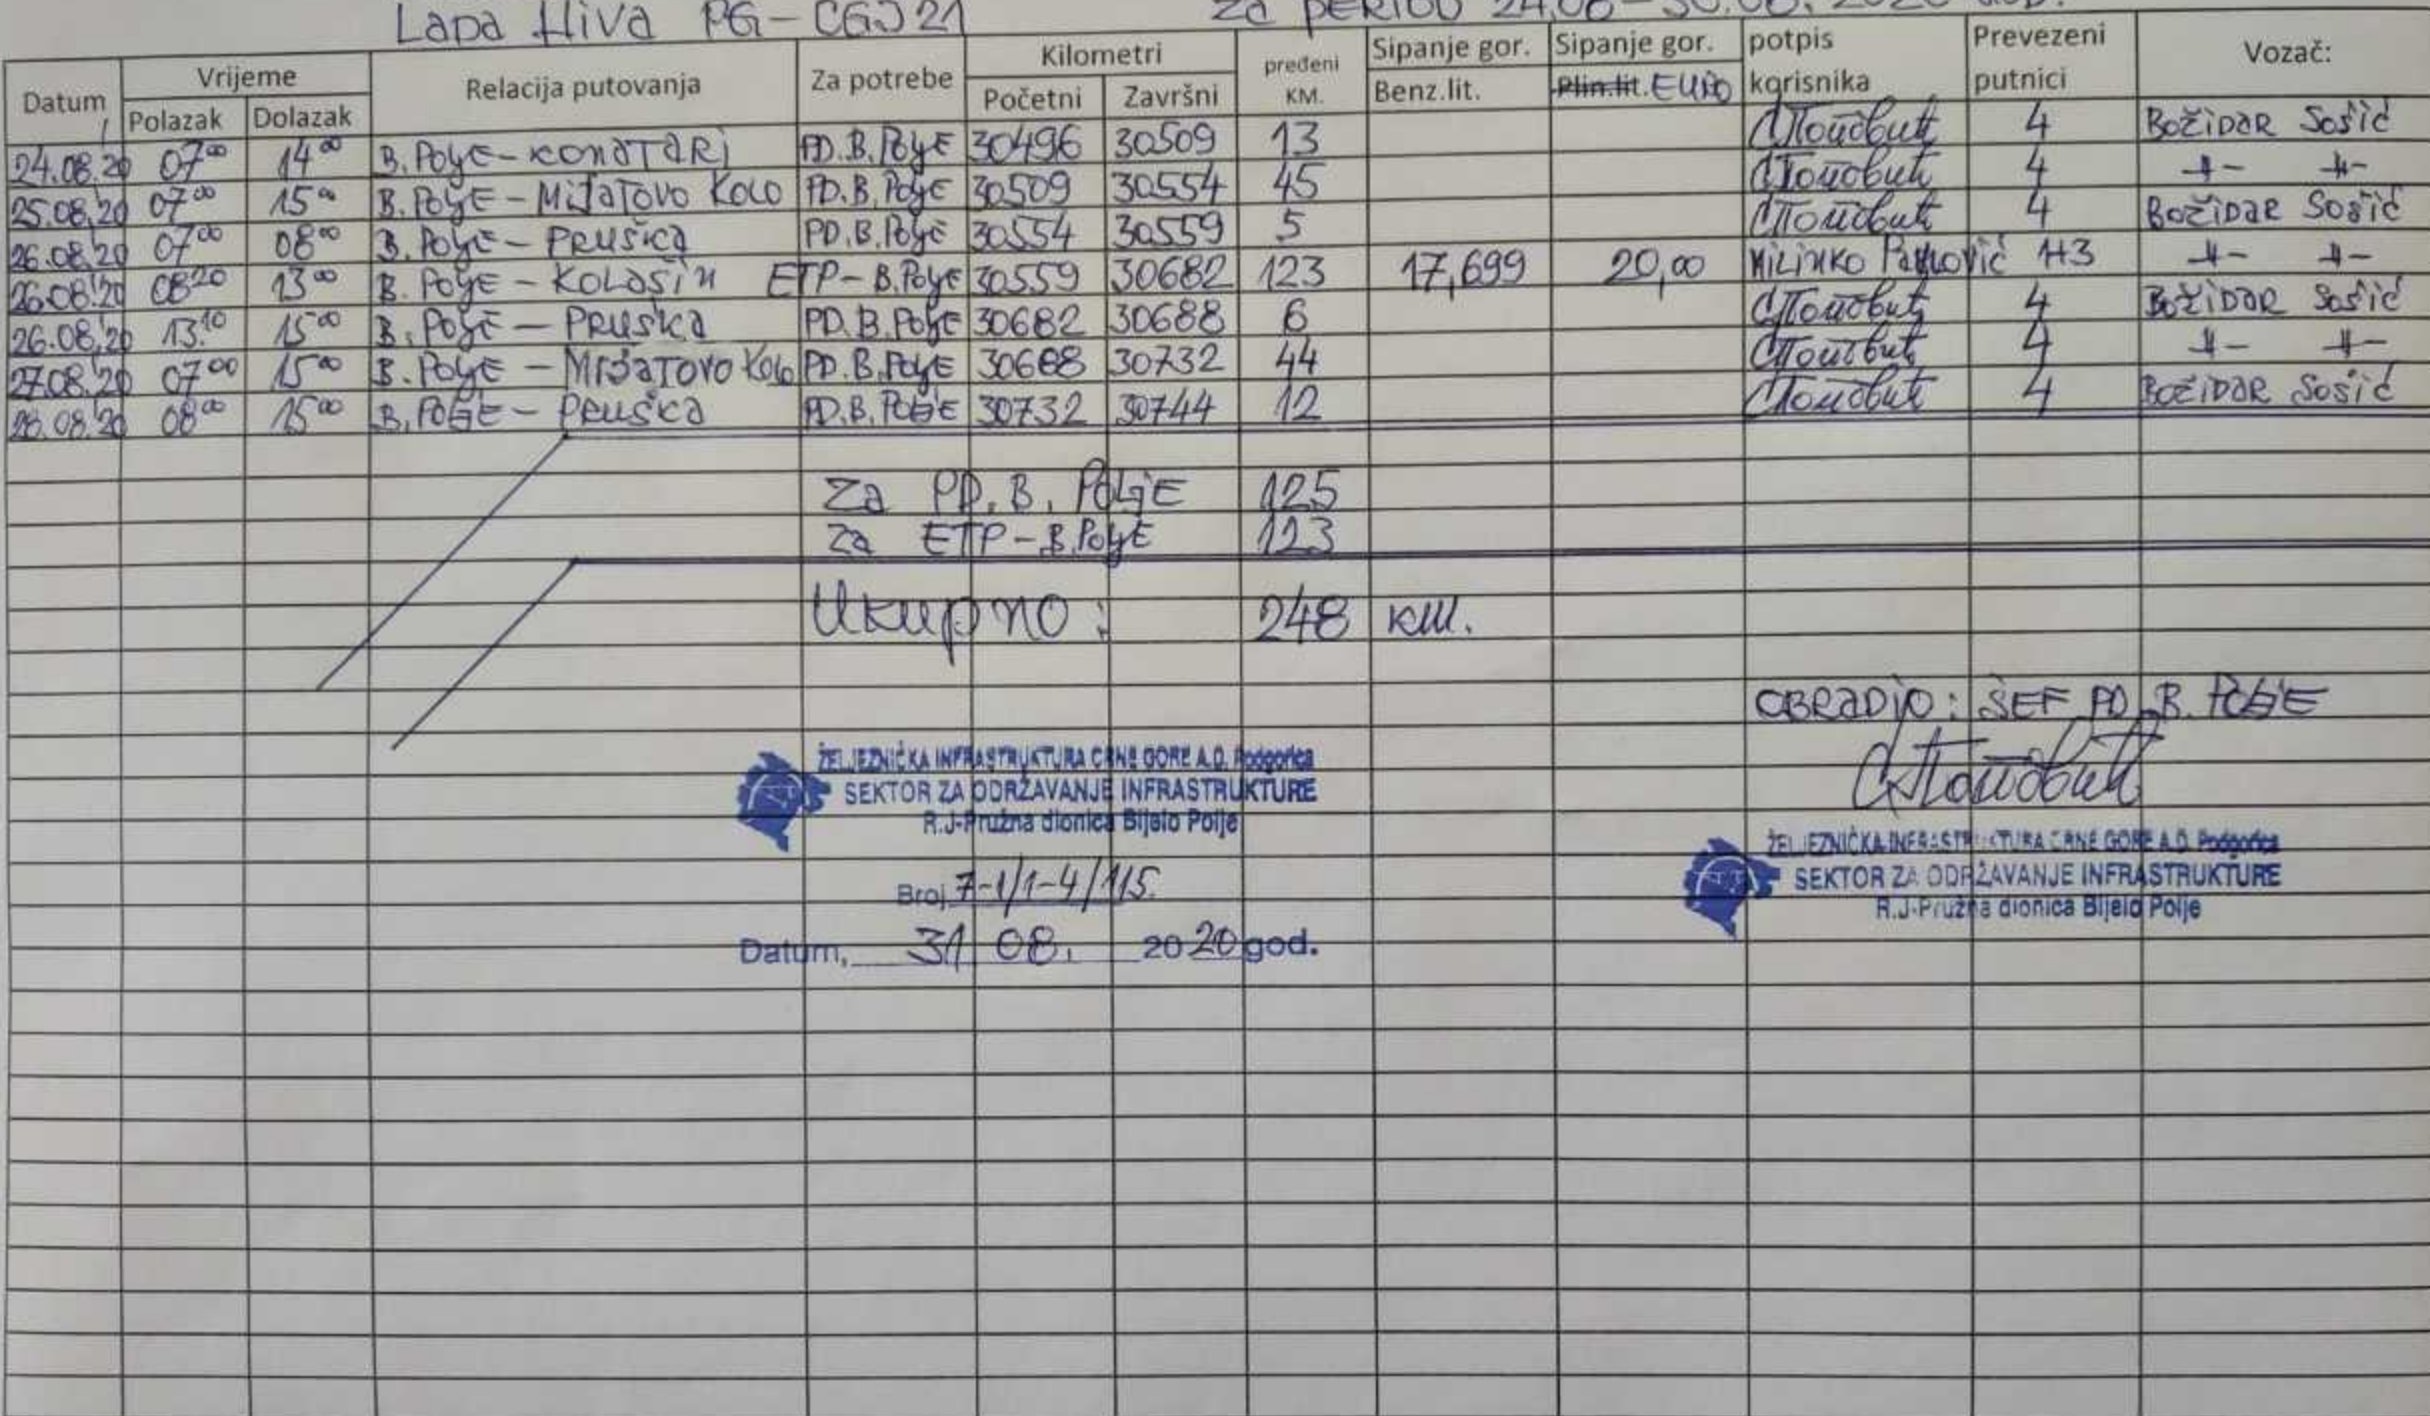 Lada Niva PG-CGJ21 Za PERIOD 24.08-30.08. 2020 GOD.
Datum Vrijeme Relacija putovanja Za potrebe Kilometri pređeni KM. Sipanje gor. Sipanje gor. potpis korisnika Prevezeni putnici Vozač:
Polazak Dolazak Početni Završni Benz.lit. Plin.lit. EURO
24.08.20 07 00 14 00 B. POLJE-KONATARI PD.B.POLJE 30496 30509 13 4 BOŽIDAR Sošić
25.08.20 07 00 15 00 B. POLJE - MIJATOVO KOLO PD.B.POLJE 30509 30554 45 4 -II- -II-
26.08.20 07 00 08 00 B. POLJE - PRUŠKA PD.B.POLJE 30554 30559 5 4 BOŽIDAR Sošić
26.08.20 08 20 13 00 B. POLJE - KOLAŠIN ETP-B.POLJE 30559 30682 123 17,699 20,00 MILINKO 1+3 -II- -II-
26.08.20 13.10 15 00 B. POLJE - PRUŠKA PD.B.POLJE 30682 30688 6 4 BOŽIDAR Sošić
27.08.20 07 00 15 00 B. POLJE - MIJATOVO KOLO PD.B.POLJE 30688 30732 44 4 -II- -II-
28.08.20 08 00 15 00 B. POLJE - PRUŠKA PD.B.POLJE 30732 30744 12 4 BOŽIDAR Sošić
Za PD. B. POLJE 125
Za ETP-B.POLJE 123
Ukupno: 248 km.
OBRADIO: ŠEF PD B. POLJE
ŽELJEZNIČKA INFRASTRUKTURA CRNE GORE A.D. Podgorica
SEKTOR ZA ODRŽAVANJE INFRASTRUKTURE
R.J-Pružna dionica Bijelo Polje
Broj 7-1/1-4/115.
Datum, 31 08. 2020 god.
ŽELJEZNIČKA INFRASTRUKTURA CRNE GORE A.D. Podgorica
SEKTOR ZA ODRŽAVANJE INFRASTRUKTURE
R.J-Pružna dionica Bijelo Polje